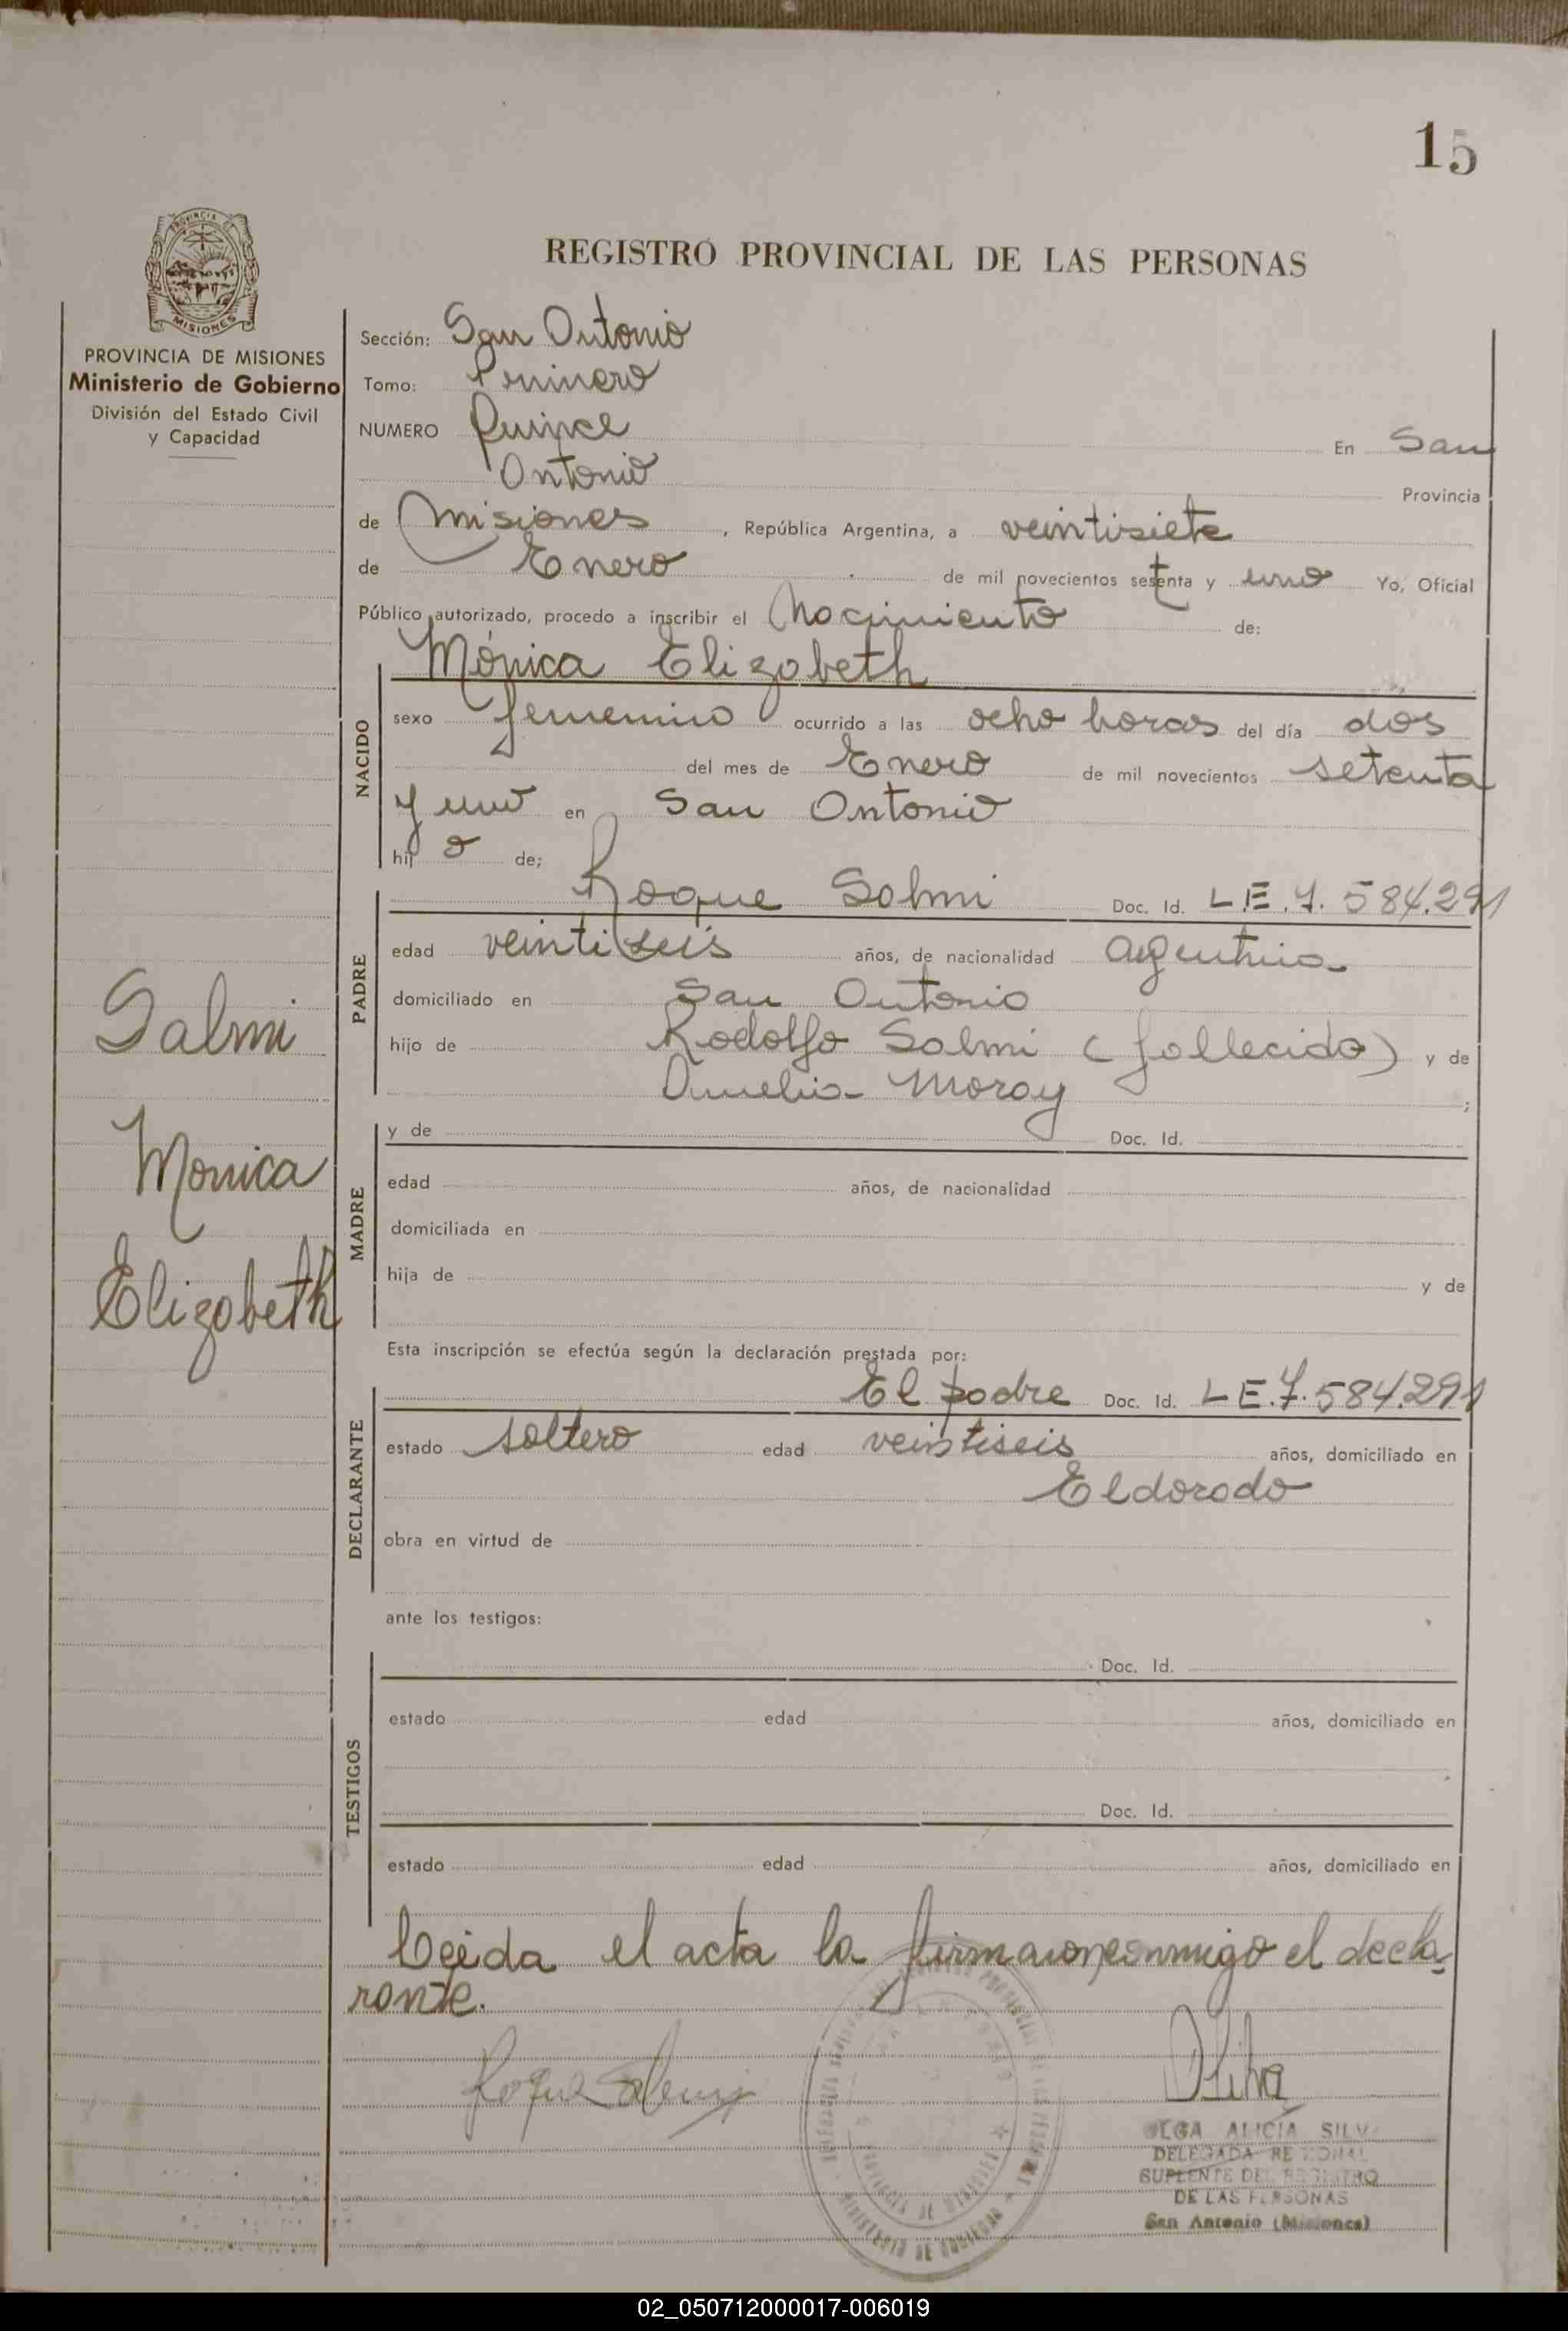 15
REGISTRO PROVINCIAL DE LAS PERSONAS
PROVINCIA DE MISIONES
Ministerio de Gobierno
División del Estado Civil
y Capacidad
Sección: San Antonio
Tomo: Primero
NUMERO Quince En San
Antonio Provincia
de Misiones, República Argentina, a veintisiete
de Enero de mil novecientos setenta y uno Yo, Oficial
Público autorizado, procedo a inscribir el Nacimiento de:
Mónica Elizabeth
NACIDO
sexo femenino ocurrido a las ocho horas del día dos
del mes de Enero de mil novecientos setenta
y uno en San Antonio
hij a de;
PADRE
Roque Salmi Doc. Id. L.E. 7.584.291
edad veintiseis años, de nacionalidad argentina
domiciliado en San Antonio
hijo de Rodolfo Salmi (fallecido) y de
Amelia Moray ;
MADRE
y de Doc. Id.
edad años, de nacionalidad
domiciliada en
hija de y de
Salmi
Monica
Elizabeth
Esta inscripción se efectúa según la declaración prestada por:
DECLARANTE
El padre Doc. Id. L E. 7.584.291
estado soltero edad veintiseis años, domiciliado en
Eldorado
obra en virtud de
ante los testigos:
TESTIGOS
Doc. Id.
estado edad años, domiciliado en
Doc. Id.
estado edad años, domiciliado en
Leida el acta la firma conmigo el decla-
rante.
Roque Salmi
OSilva
OLGA ALICIA SILVA
DELEGADA REGIONAL
SUPLENTE DEL REGISTRO
DE LAS PERSONAS
San Antonio (Misiones)
02_050712000017-006019